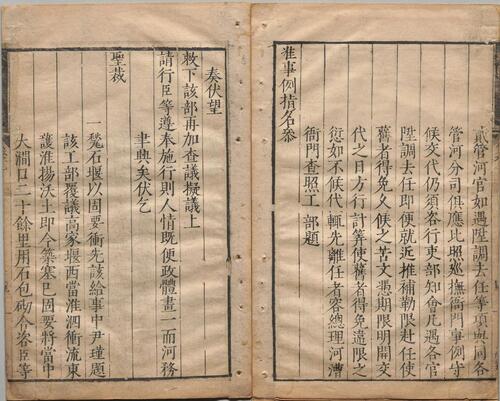 貳管河官如遇陞調去任等項與同各
管河分司俱應比照巡撫衙門事例守
候交代仍須咨行吏部知會凡遇各官
陞調去任即便就近推補勒限赴任使
舊者得免久候之苦文憑期限明開交
代之日方行計筭使舊者得免違限之
愆如不候代輒先離任者容總理河漕
衙門查照工部題
准事例指名參
奏伏望
敕下該部再加查議擬議上
請行臣等遵奉施行則人情既便政體畫一而河務
聿興矣伏乞
聖裁
一甃石堰以固要衝先該給事中尹瑾題
該工部覆議高家堰西當淮泗衝流東
護淮揚沃土即今築塞已固要將當中
大澗口二十餘里用石包砌令咨臣等